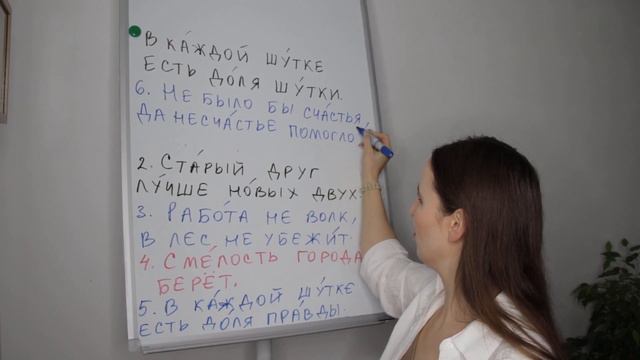 В КА́ЖДОЙ ШУ́ТКЕ
ЕСТЬ ДО́ЛЯ ШУ́ТКИ.
6. НЕ БЫЛО БЫ СЧА́СТЬЯ,
ДА НЕСЧА́СТЬЕ ПОМОГЛО́
2. СТА́РЫЙ ДРУГ
ЛУ́ЧШЕ НО́ВЫХ ДВУХ.
3. РАБО́ТА НЕ ВОЛК,
В ЛЕС НЕ УБЕЖИ́Т.
4. СМЕ́ЛОСТЬ ГОРОДА
БЕРЁТ.
5. В КА́ЖДОЙ ШУ́ТКЕ
ЕСТЬ ДО́ЛЯ ПРА́ВДЫ.